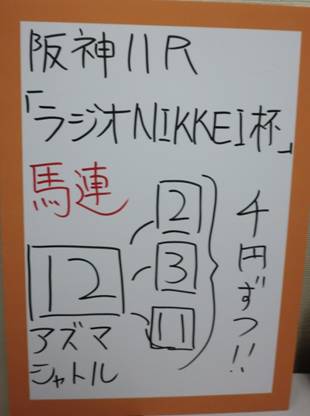 阪神11R
「ラジオNIKKEI杯」
馬連
12
アズマ
シャトル
2
3
11
千円ずつ!!